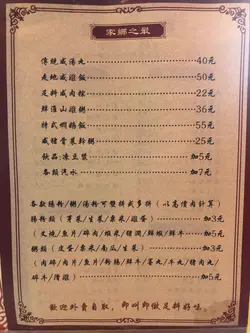 家鄉之最
傳統咸湯丸 40元
走地咸雞飯 50元
足料咸肉粽 22元
鮮淮山雞粥 36元
特式焗鵝飯 55元
咸豬骨菜粉粥 25元
飲品:凍豆漿 加5元
各類汽水 加7元
各款腸粉/粥/湯粉可雙拼或多拼(以高價肉計算)
腸粉類(芽菜/生菜/粟米/雞蛋) 加3元
(叉燒/魚片/碎肉/蝦米/豬潤/鮮蝦/鮮牛) 加5元
粥類(皮蛋/粟米/南瓜/生菜) 加3元
(肉碎/肉片/魚片/粉腸/鮮牛/墨丸/牛丸/豬肉丸/
碎牛/滑雞) 加5元
歡迎外賣自取,即叫即做足料好味。